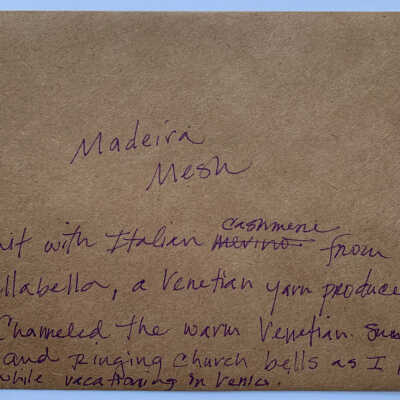 Madeira
Mesh
nit with Italian cashmere Merino from
llabella, a Venetian yarn produce
Channeled the warm Venetian Sun
and ringing church bells as I
while vacationing in Venice.